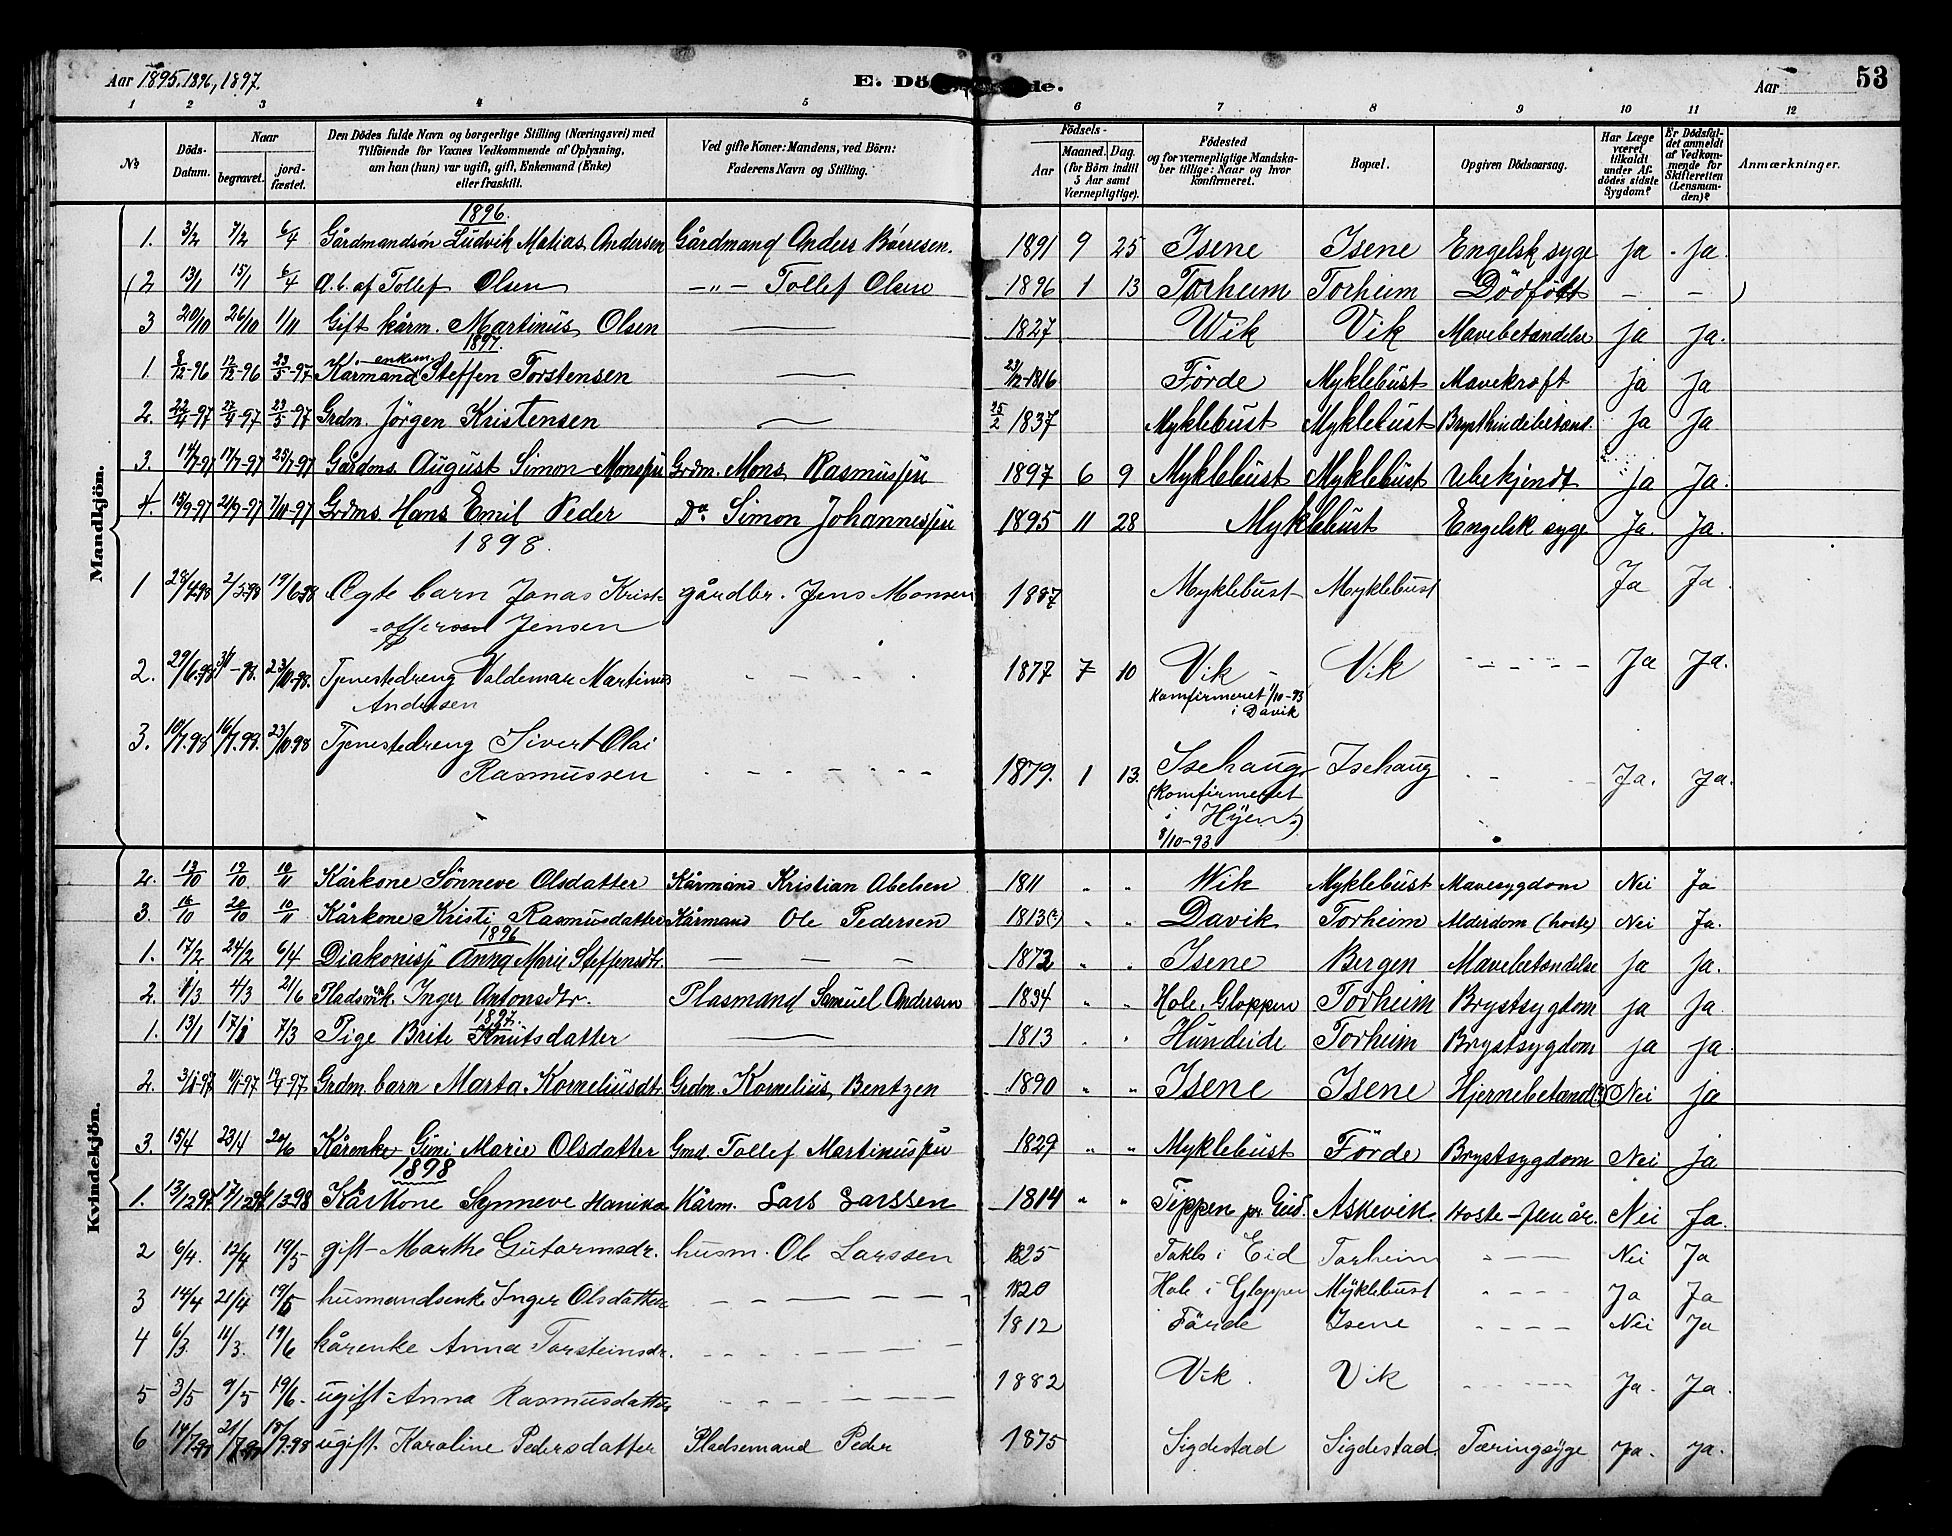 Aar 1895. 1896, 1897. E. Dö de. Aar 53
1 2 3 4 5 6 7 8 9 10 11 12
No Döds-Datum. Naar begravet. jordfæstet. Den Dödes fulde Navn og borgerlige Stilling (Næringsvei) med Tilföiende for Voxnes Vedkommende af Oplysning, om han (hun) var ugift, gift, Enkemand (Enke) eller fraskilt. Ved gifte Koner: Mandens, ved Börn: Faderens Navn og Stilling. Födsels- Aar Maaned. Dag. (for Börn indtil 5 Aar samt Værnepligtige). Födested og for værnepligtige Mandskaber tillige: Naar og hvor konfirmeret. Bopæl. Opgiven Dödsaarsag. Har Læge været tilkaldt under Afdödes sidste Sygdom? Er Dödsfaldet anmeldt af Vedkommende for Skifteretten (Lensmanden)? Anmærkninger.
Mandkjön.
1896.
1. 3/2 7/2 6/4 Gårdmandsön Ludvik Matias Andersen Gårdmand Anders Börresen. 1891 9 25 Isene Isene Engelsk syge Ja Ja.
(2 13/1 15/1 6/4 a.b. af Tollef Olsen —"— Tollef Olsen 1896 1 13 Torheim Torheim Dödfödt — — )
3 20/10 26/10 1/11 Gift kårm. Martinus Olsen — 1827 Wik Vik Mavebetændelse ja ja.
1897.
1 8/12-96 12/12-96 23/5-97 Kårmand enkem. Steffen Torstensen — 23/12-1816 Förde Myklebust Mavekræft ja ja
2. 22/4-97 27/4-97 23/5-97 Grdm. Jörgen Kristensen — 25/2 1837 Myklebust Myklebust Brysthindebetænd. Ja Ja
3. 14/7-97 17/7-97 25/7-97 Gårdms. August Simon Monssen Grdm. Mons Rasmussen 1897 6 9 Myklebust Myklebust Ubekjendt Ja Ja.
4. 15/9-97 21/9-97 7/11-97 Grdms. Hans Emil Peder Do. Simon Johannessen 1895 11 28 Myklebust Engelsk syge Ja. Ja.
1898.
1 28/4 98 2/5 98 19/6 98 Ægte barn Jonas Krist- gårdbr. Jens Monsen 1897 Myklebust Myklebust Ja Ja.
=offersen Jensen
2. 29/6.98 3/7-98. 23/10-98. Tjenestedreng Valdemar Martinus - - - - 1877 7 10 Vik - Vik - - - - - Ja Ja.
Andersen Komfirmeret 1/10-93
i Davik
3. 10/7.98 16/7.98. 23/10 98 Tjenestedreng Sivert Olai
Rasmussen - - - - - - 1879. 1 13. Isehaug Isehaug - - - Ja. Ja.
(Komfirmeret
i Hyen)
8/10-93.
Kvindekjön.
2. 12/10 19/10 10/11 Kårkone Sönneve Olsdatter Kårmand Kristian Abelsen 1811 " " Wik Myklebust Mavesygdom Nei Ja
3. 16/10 20/10 10/11 Kårkone Kristi Rasmusdatter Kårmand Ole Pedersen 1813(?) " " Davik Torheim Alderdom (hoste) Nei Ja.
1896
1. 17/2 24/2 6/4 Diakonisse Anna Marie Steffensdtr. — — — 1872 " " Isene Bergen Mavebetændelse ja ja.
2. 1/3 4/3 21/6 Inger Antonsdtr. Plasmand Samuel Andersen 1834 " " Hole, Gloppen Torheim Brystsygdom ja ja.
1897.
1. 13/1 17/1 7/3 Pige Brite Knutsdatter — 1813 " " Hundeide Torheim Brystsygdom ja ja.
2. Grdm. barn Marta Korneliusdtr. Grdm. Kornelius Bentzen 1890 " " Isene Isene Hjernebetænd(?) Nei ja
3. 15/4 23/4 20/6 Kårenke Guni Marie Olsdatter Grmd. Tollef Martinussen 1829 " " Myklebust Förde Brystsygdom Nei ja
1898
1. 13/12 97 17/12 97 Kårkone Synneve Hanika Kårm. Lars Larssen 1814 " " Tippen pr. Eid. Askevik. Hoste-flere år. Nei Ja.
2 6/4. 12/4 19/5 gift - Marthe Gutormsdr. husm. Ole Larssen 1825 Taklo i Eid Torheim " — — Nei Ja
3 14/4 21/4 19/5 husmandsenke Inger Olsdatter - - — — — — 1820 Hole i Gloppen Myklebust - - - - Ja Ja
4 6/3. 11/3. 19/6 kårenke Anna Torsteinsdr. - - - - — — 1812 Förde Isene - - - - Nei Ja
5 3/5 9/5 19/6. ugift - Anna Rasmusdatter - - - - — — 1882 Vik. Vik - - - - - Ja. Ja.
6 14/7 98 21/7 98 18/9.98 ugift. Karoline Pedersdatter Pladsemand Peder 1875 Sigdestad Sigdestad. Tæringsyge Ja. Ja.